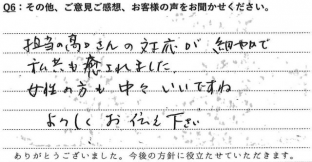 Q6：その他、ご意見ご感想、お客様の声をお聞かせください。
担当の高口さんの対応が細やかで
私共も癒されました。
女性の方も中々いいですね
よろしくお伝え下さい
ありがとうございました。今後の方針に役立たせていただきます。